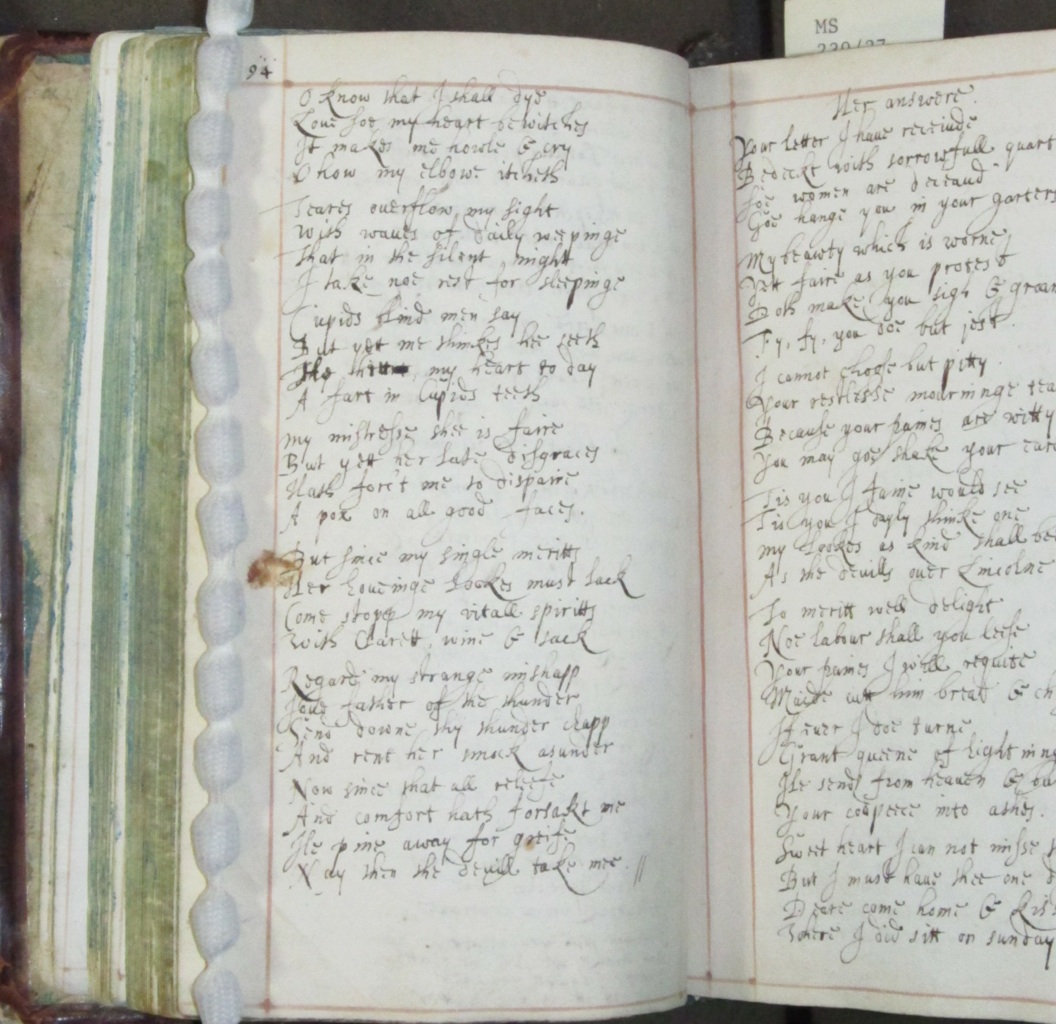 MS
239/27
94
O know that I shall dye
Love soe my heart bewitches
It makes me howle & cry
O how my elbowe itcheth
Teares overflow my sight
With waves of daily weepinge
That in the silent night
I take noe rest for sleepinge
Cupids kind men say
But yet me thinkes hee seeth
my heart to day
A fart in Cupids teeth
My mistresse shee is faire
But yett her late disgraces
Hath forc't me to dispaire
A pox on all good faces.
But since my single meritts
Her loveinge lookes must lack
Come stope my vitall spiritts
With Clarett, wine & sack
Regard my strange mishapp
Jove father of the thunder
Send downe thy thunder clapp
And rent her smock asunder
Now since that all releefe
And comfort hath forsakt me
Ile pine away for greife
Nay then the devill take mee. //
Her answere.
Your letter I have receivde
Bedeckt with sorrowfull quart
Soe women are deceavd
Goe hange you in your garters
My beawty which is worne
Yett faire as you protest
Doth make you sigh & groan
Fy, fy, you doe but jest.
I cannot choose but pitty
Your restlesse mourninge tea
Because your paines are witty
You may goe shake your eare
Tis you I faine would see
Tis you I dayly thinke one
My lookes as kind shall bee
As the devills over Lincolne
To meritt well delight
Noe labour shall you leese
Your paines I will requite
Maide cutt him bread & ch
If ever I doe turne
Grant queene of lightning
Ile send from heaven &
Your codpeece into ashes.
Sweet heart I can not misse
But I must have thee one
Deare come home & kiss
Where I did sitt on sunday